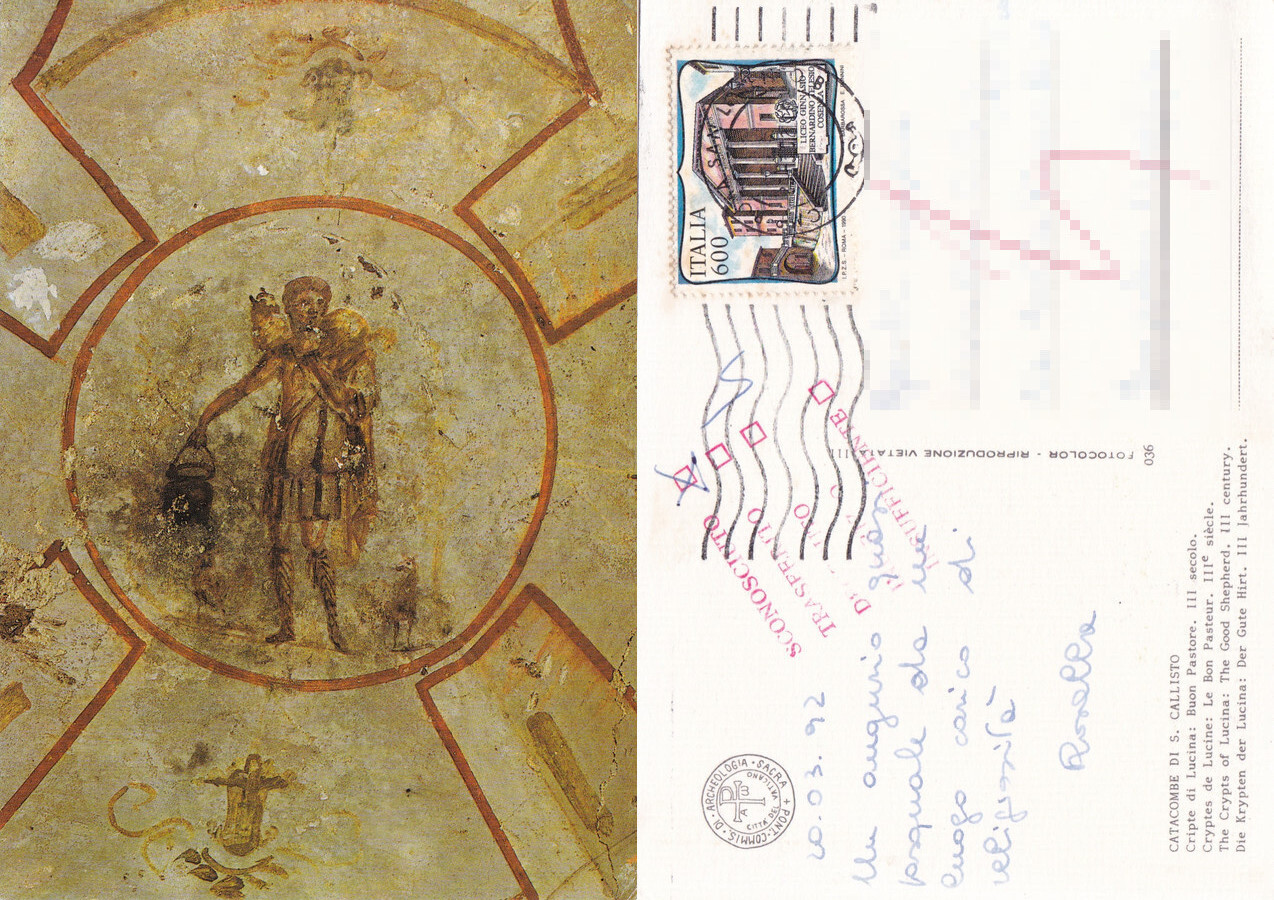 ITALIA
600
LICEO GINNASIO
BERNARDINO TELESIO
COSENZA
I.P.Z.S. - ROMA - 1990
SCONOSCIUTO
TRASFERITO
INSUFFICIENTE
PONT · COMMIS · DI · ARCHEOLOGIA · SACRA +
CITTÀ DEL VATICANO
20.03.92
Un augurio quasi
pasquale da un
luogo carico di
religiosità
FOTOCOLOR - RIPRODUZIONE VIETATA
036
CATACOMBE DI S. CALLISTO
Cripte di Lucina: Buon Pastore. III secolo.
Cryptes de Lucine: Le Bon Pasteur. IIIe siècle.
The Crypts of Lucina: The Good Shepherd. III century.
Die Krypten der Lucina: Der Gute Hirt. III Jahrhundert.